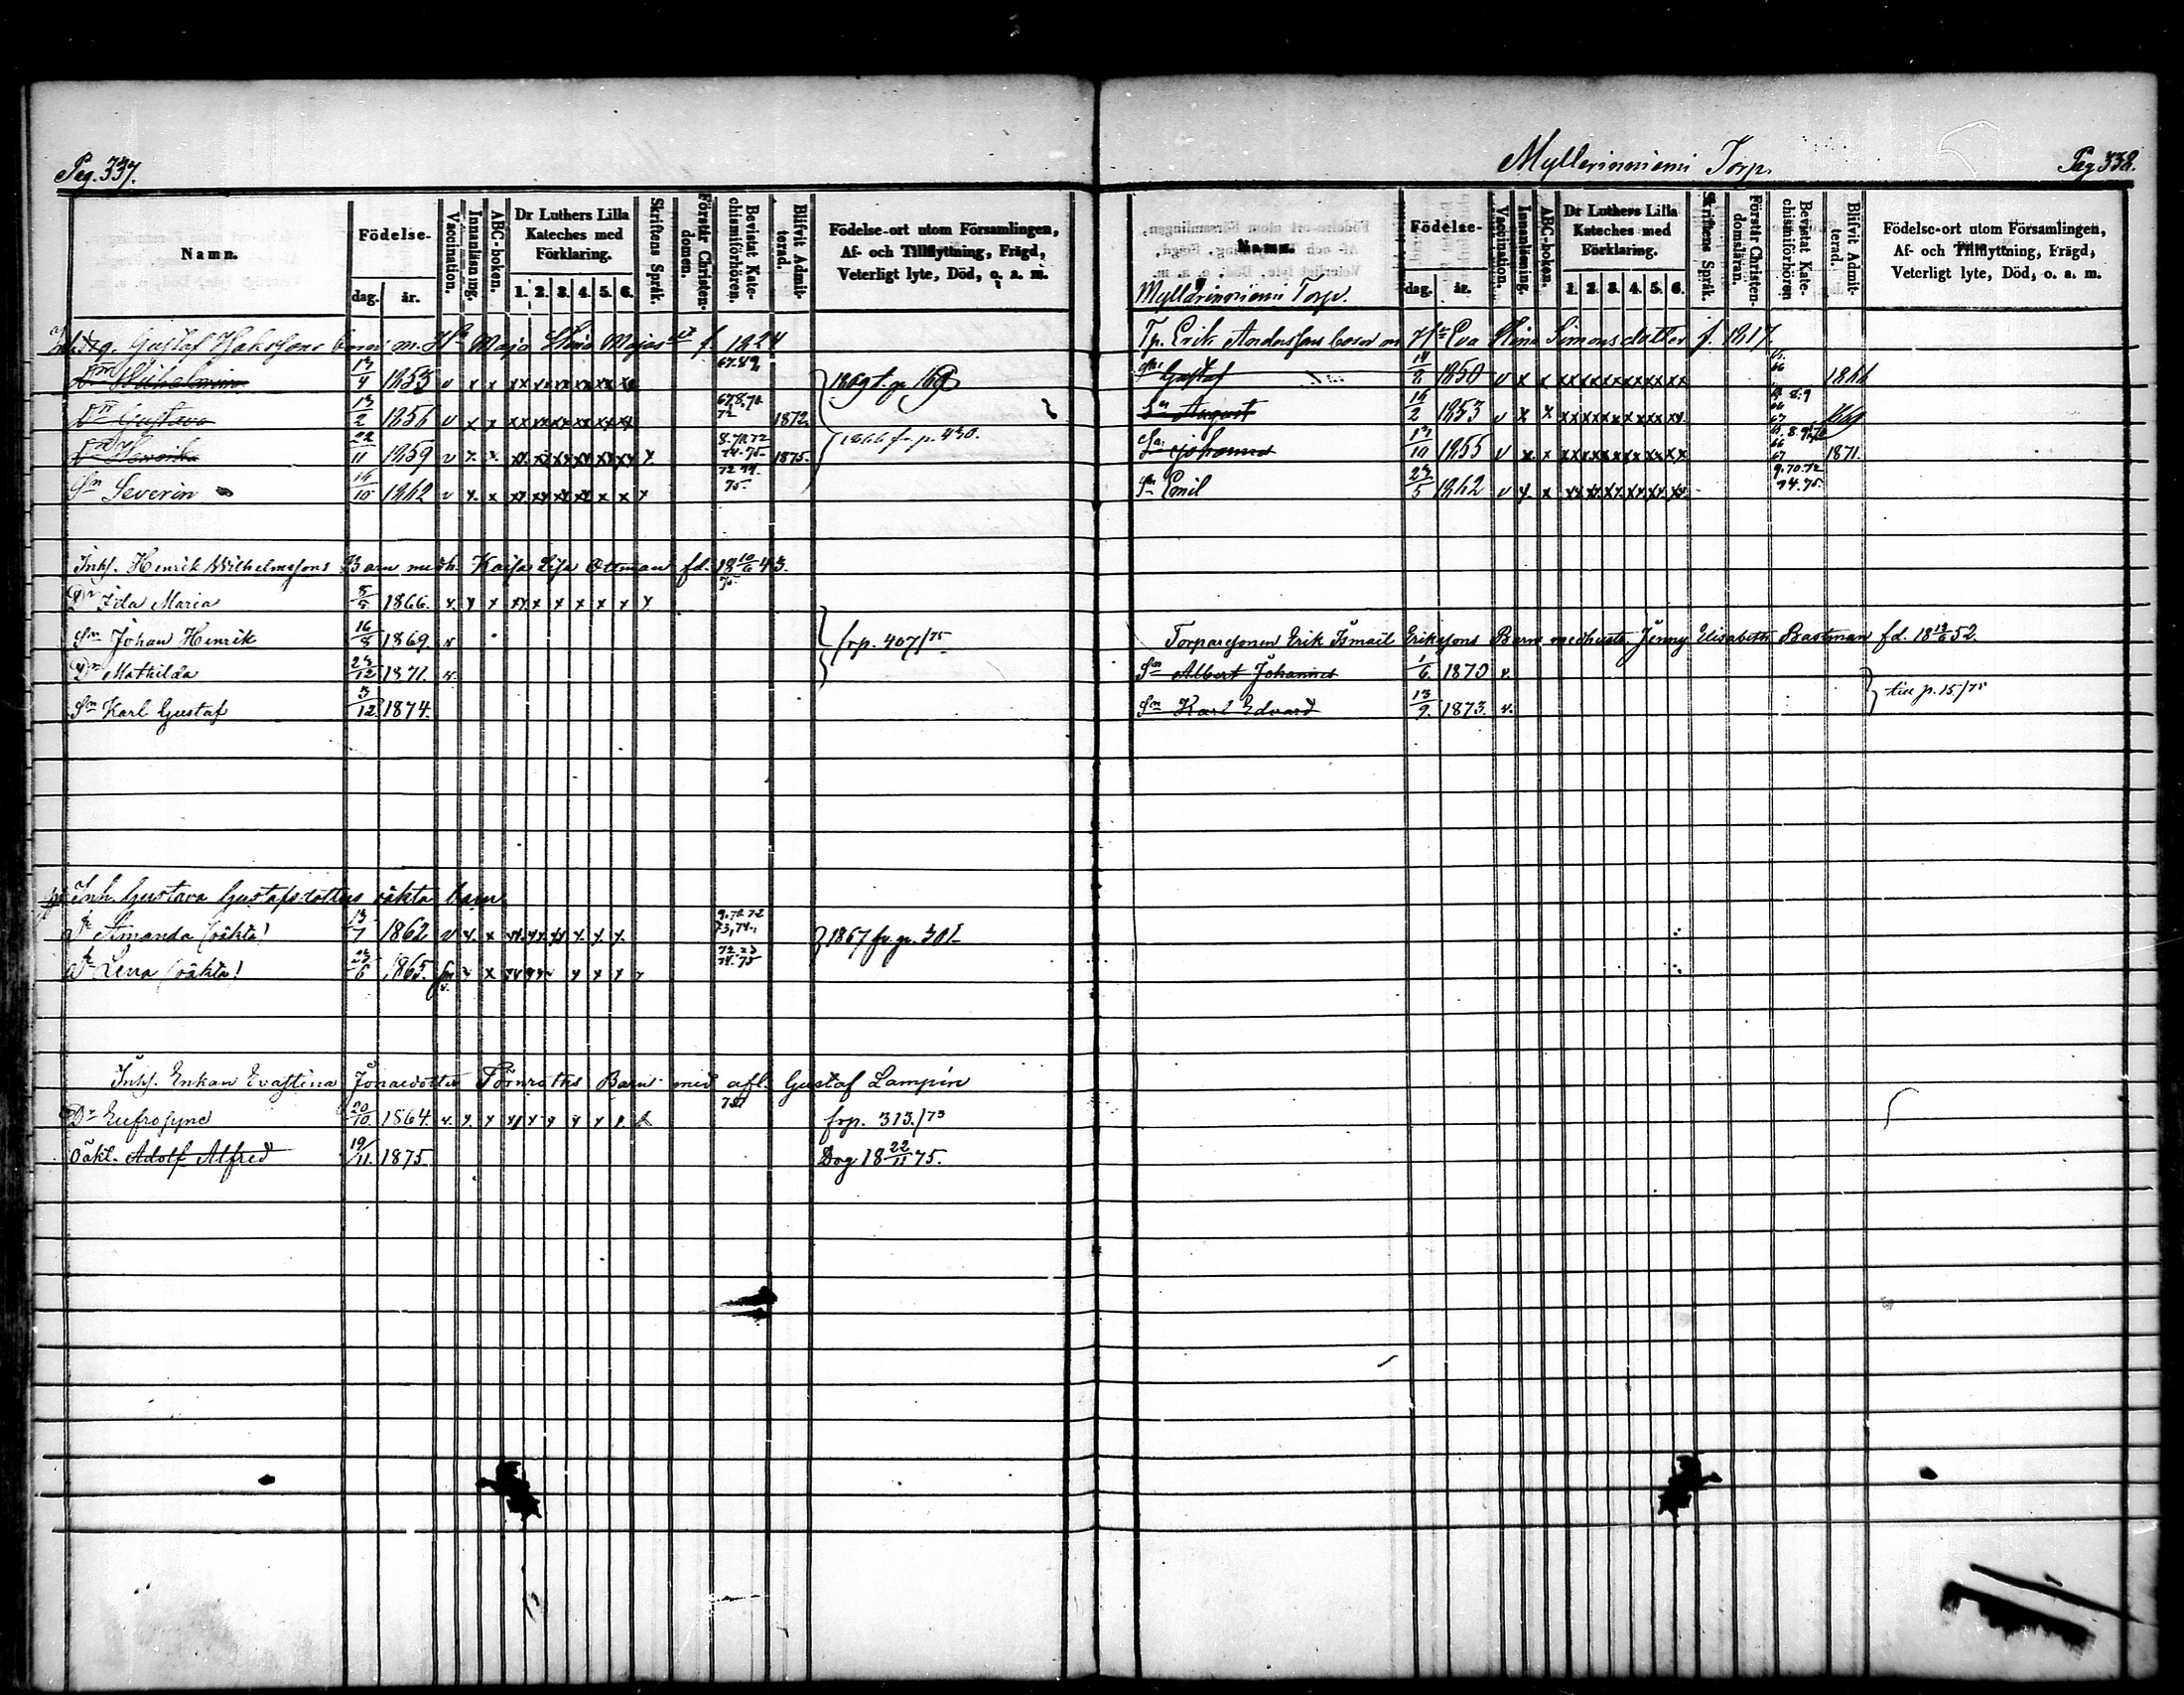 Pag. 337.
Namn.
Födelse-
dag.
år.
Vaccination.
Innanläsning.
ABC-boken.
Dr Luthers Lilla Kateches med Förklaring.
1. 2. 3. 4. 5. 6.
Skriftens Språk.
Förstår Christen-domen.
Bevistat Kate-chismiförhören.
Blifvit Admit-terad.
Födelse-ort utom Församlingen,
Af- och Tillflyttning, Frägd,
Veterligt lyte, Död, o. a. m.
Gustaf Isaksons barn m. Maja Stina f. 1824
Wilhelmina 13/4 1853 v x x xx xx xx xx xx xx 67.8.9. 1869 t. p. 169
Gustava 13/2 1856 v x x xx xx xx xx xx xx 67.8.70 72 1872.
Henrika 22/11 1859 v x x xx xx xx xx xx xx x 8.70.72 74.75. 1875. 1866 fr. p. 430.
Sn Severin 16/10 1862 v x x xx xx xx xx x x x 72 74. 75.
Inhs. Henrik Wilhelmssons Barn med h. Kaisa Lisa Ottman fd. 18 10/6 43.
Dr Ida Maria 5/5 1866. v. x x xx x x x x x x 75.
Sn Johan Henrik 16/8 1869. v frp. 407/75
Dr Mathilda 24/12 1871. v.
Sn Karl Gustaf 3/12 1874.
Inh. Gustava Gustafsdotters oäkta barn
Dr Amanda (oäkta) 13/7 1862 v x. x xx. xx. xx x. x. x. 9.70 72 73,74., 1867 fr. p. 301
Dr Lena (oäkta) 23/6 1865. x x x x x x x 72.73 74.75
Inhs. Enkan Evastina Jonaedotter Törnroths Barn med afl. Gustaf Lampin
Dr Eufrosyne 20/10 1864. v. x. x x x x x x frp. 313./73
Oäkt. Adolf Alfred 19/11. 1875. Dog 18 22/11 75.
Myllerinniemi Torp.
Pag 338.
Namn.
Födelse-
dag.
år.
Vaccination.
Innanläsning.
ABC-boken.
Dr Luthers Lilla Kateches med Förklaring.
1. 2. 3. 4. 5. 6.
Skriftens Språk.
Förstår Christen-domsläran.
Bevistat Kate-chismiförhören
Blifvit Admit-terad.
Födelse-ort utom Församlingen,
Af- och Tillflyttning, Frägd,
Veterligt lyte, Död, o. a. m.
Myllärinniemi Torp.
Tp. Erik Anderssons barn m Eva Stina Simonsdotter f. 1817.
Sn Gustaf 14/2 1850 v x x xx xx xx xx xx xx 66
Sn August 16/2 1853 v x x xx xx xx xx xx xx 8.9 1869
Sn Johannes 13/10 1855 v x x xx xx xx xx xx xx 1871.
Sn Emil 23/5 1862 v x. x xx xx xx xx xx xx 9.70.72 74.75.
Torparesonen Erik Ismail Erikssons Barn med hustr. Jenny Elisabeth Bastman fd. 18 19/6 52.
Sn Albert Johannes 1/6 1870 v.
Sn Karl Edvard 13/9. 1873. v. till p. 15/75